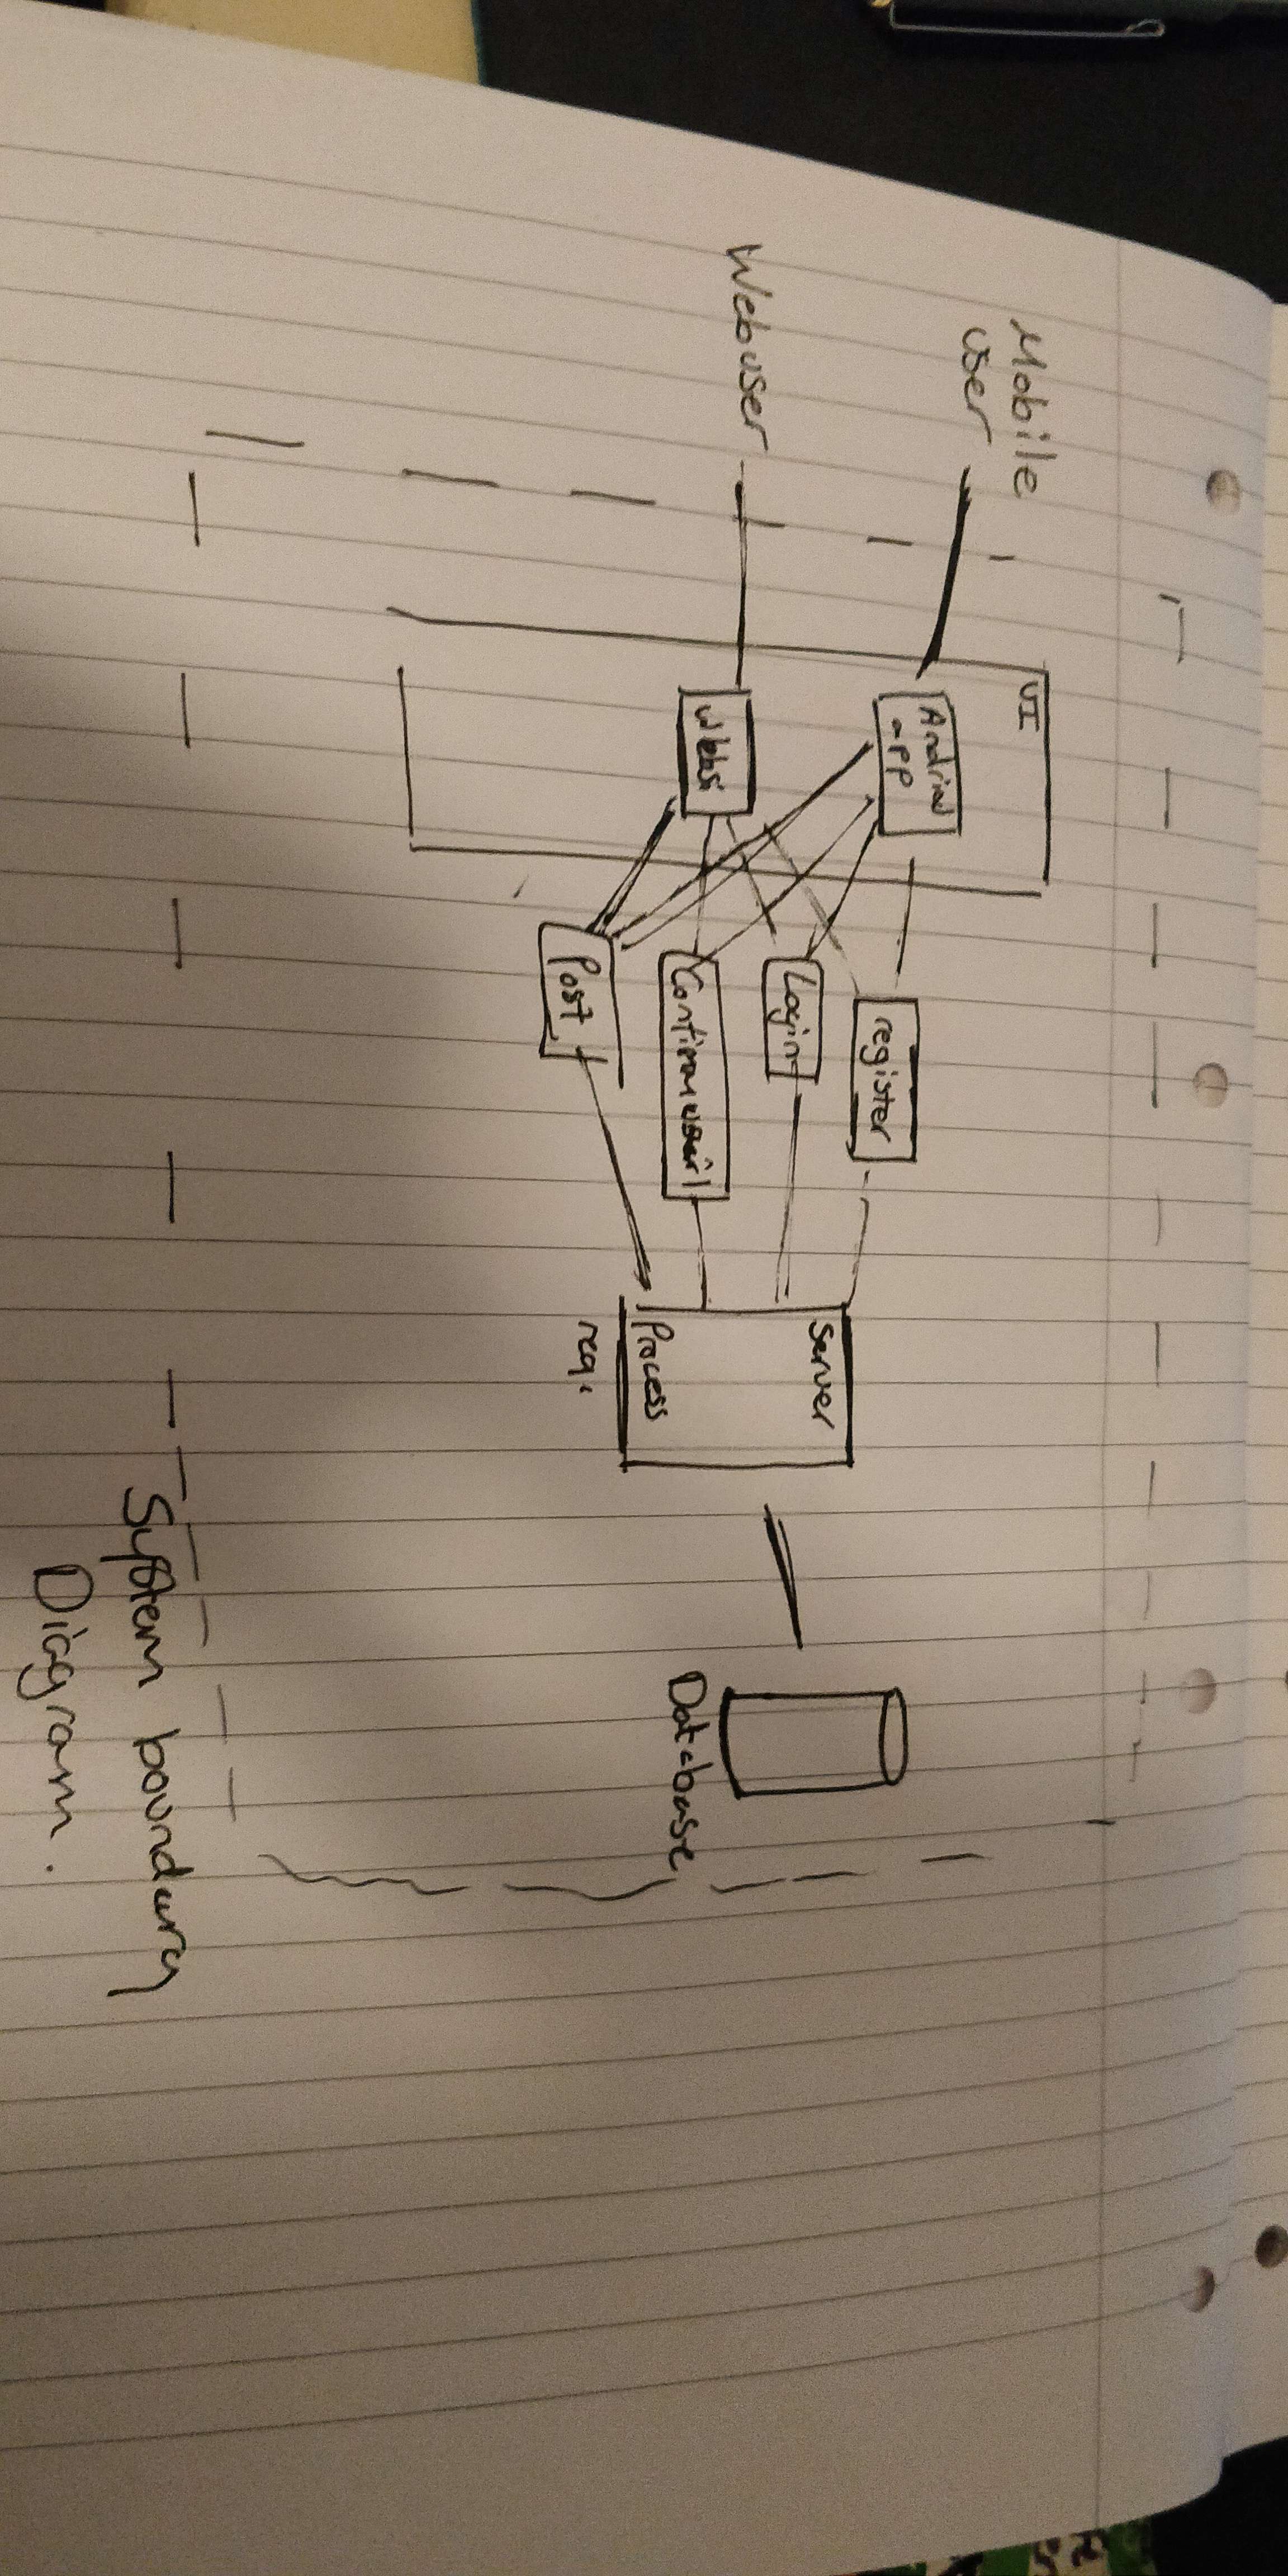 Mobile
user
Web user
UI
app
register
Login
Confirm user
Post
Server
Process
req.
Database
System boundary
Diagram.